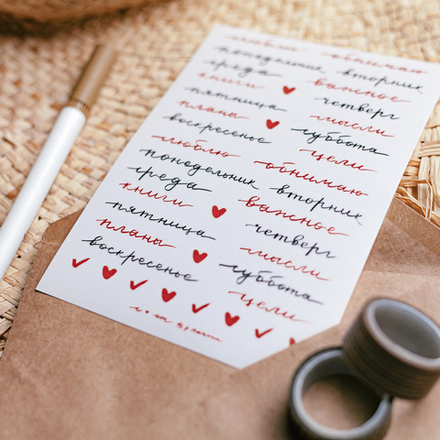 люблю обнимаю
понедельник вторник
среда важное
книги четверг
пятница мысли
планы суббота
воскресенье цели
люблю обнимаю
понедельник вторник
среда важное
книги четверг
пятница мысли
планы суббота
воскресенье цели